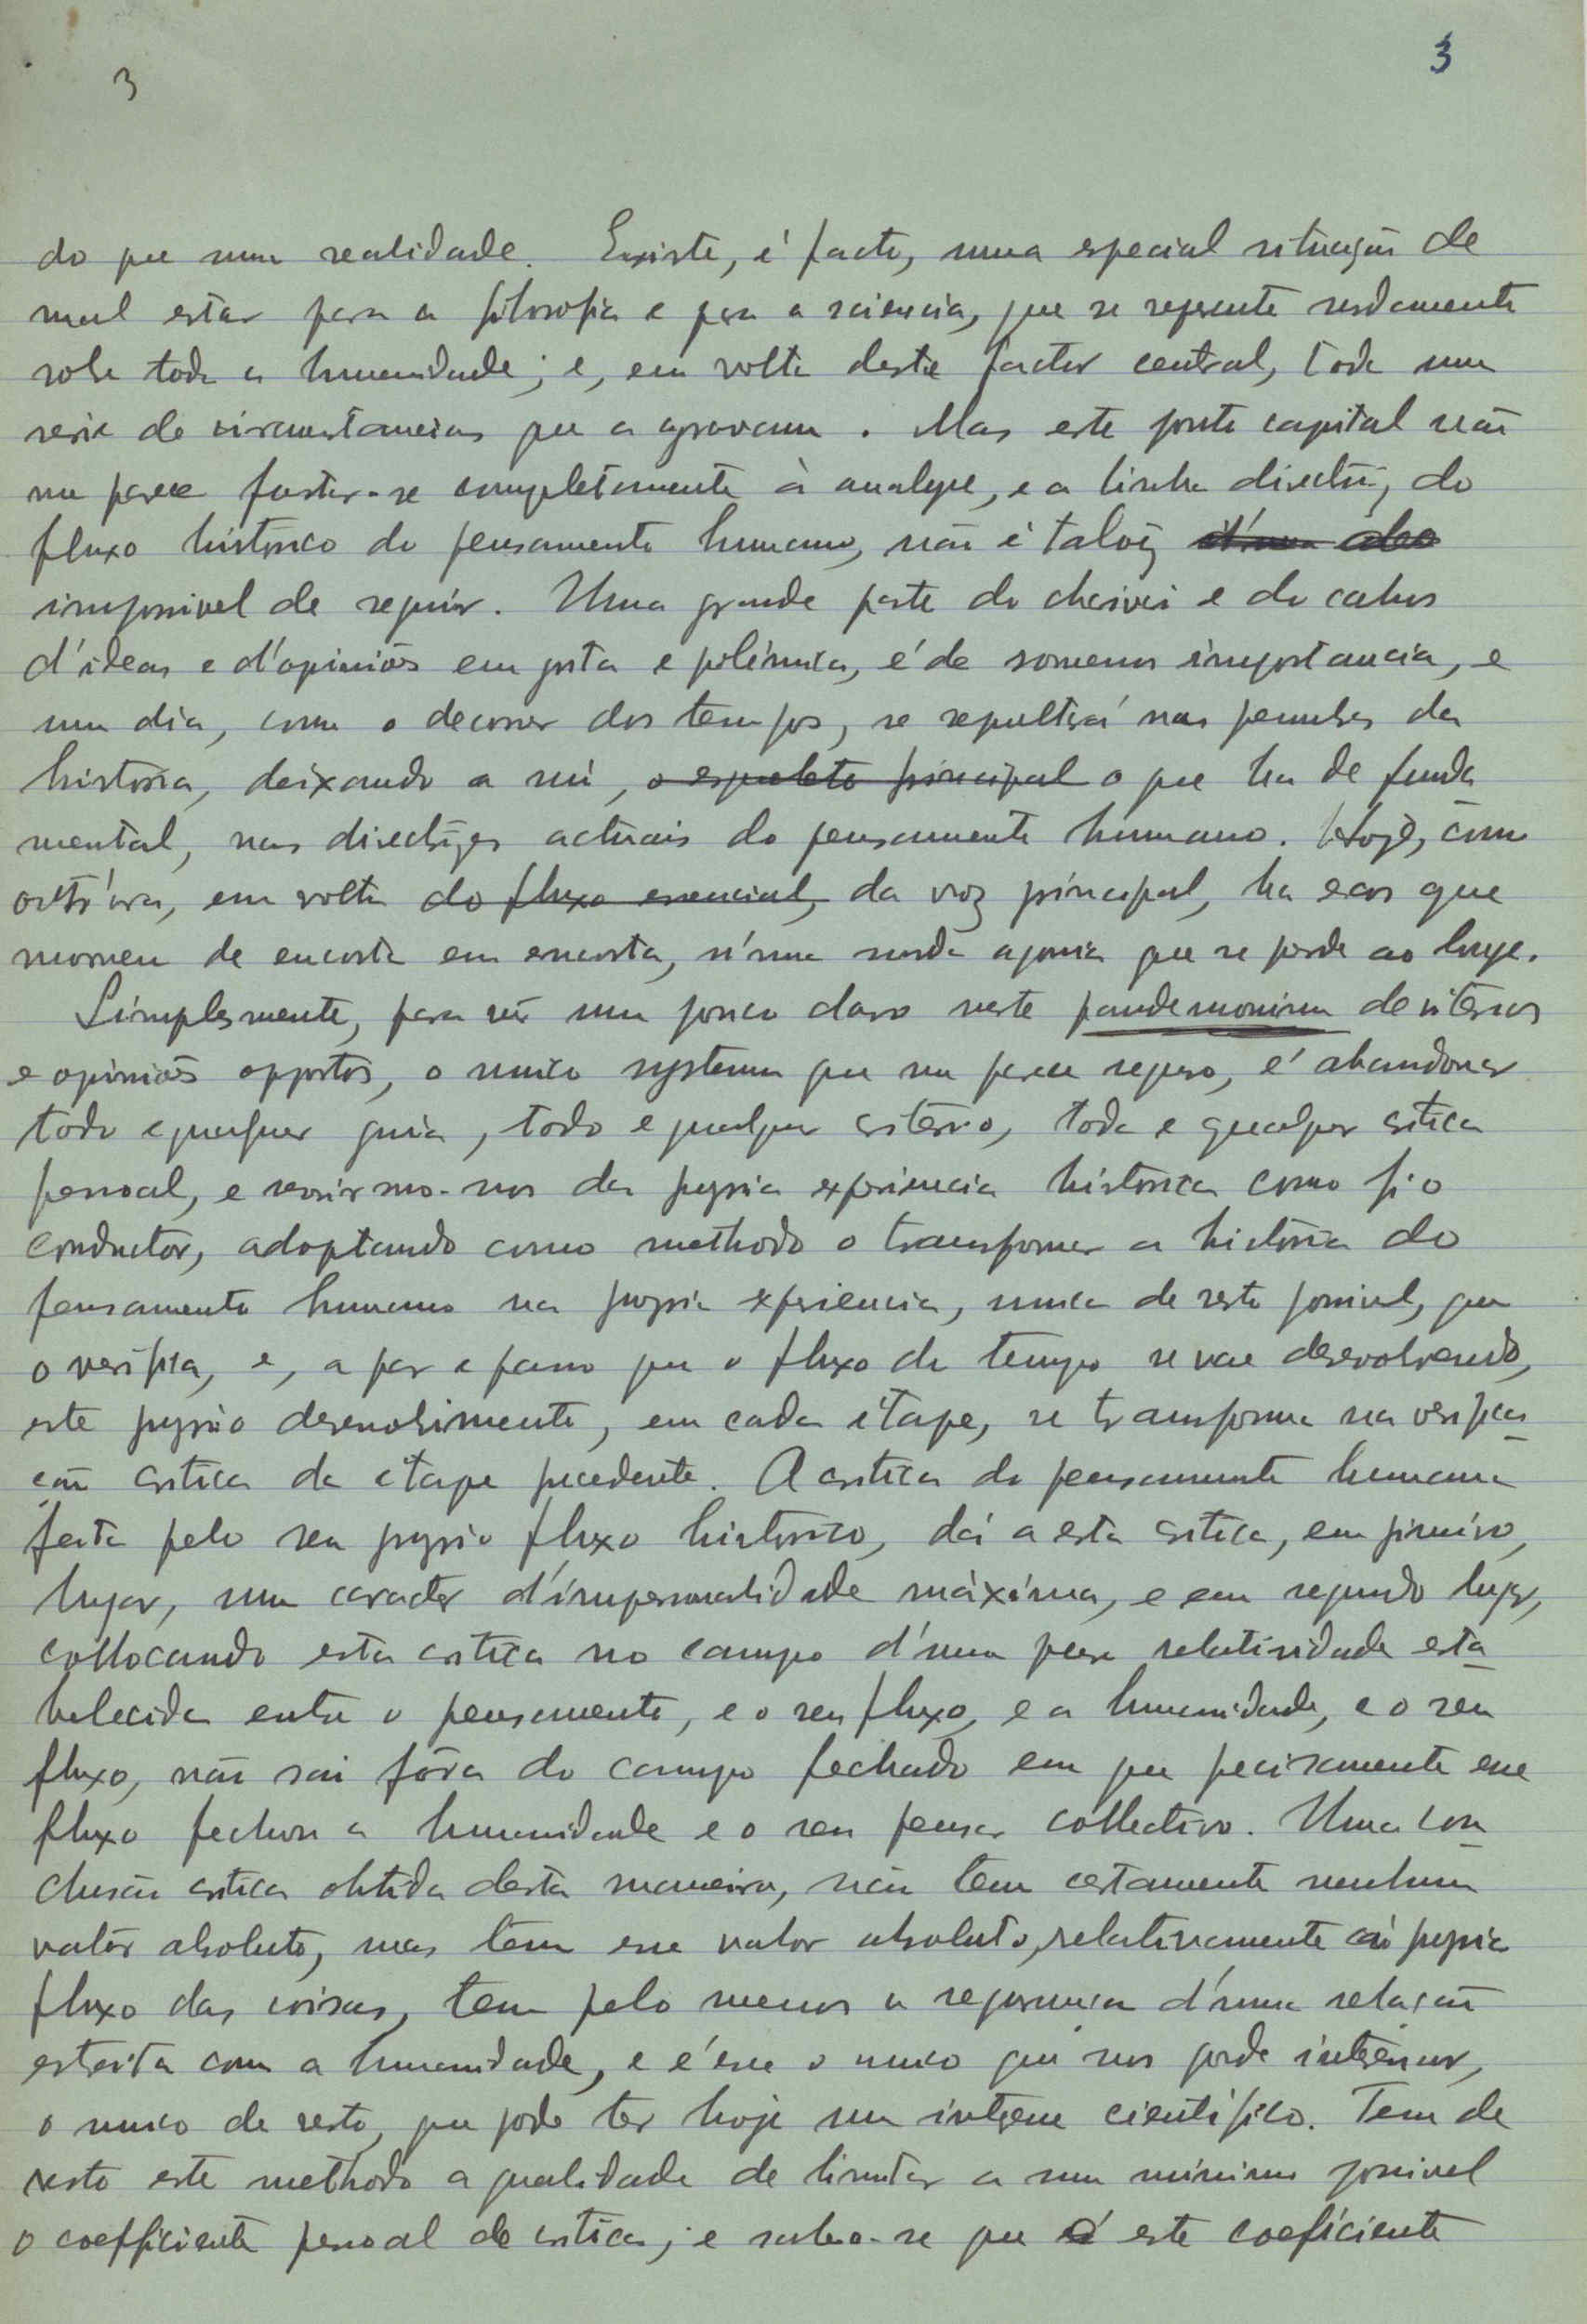 3
3
do que numa realidade. Existe, é facto, uma especial situação de
mal estar para a filosofia e para a sciencia, que se repercute surdamente
sobre toda a humanidade; e, em volta deste factor central, toda uma
serie de circumstancias que a agravam. Mas este ponto capital não
me parece furtar-se completamente à analyse, e a linha directriz, do
fluxo historico do pensamento humano, não é talvez
impossivel de seguir. Uma grande parte do chariveri e do cahos
d'ideas e d'opiniões em justa e polémica, é de somenos importancia, e
um dia, com o decorrer dos tempos, se sepultará nas penumbras da
historia, deixando a nú, o esqueleto principal o que ha de funda
mental, nas directrizes actuais do pensamento humano. Hoje, como
outr'ora, em volta do fluxo essencial, da voz principal, ha ecos que
morrem de encosta em encosta, n'uma surda agonia que se perde ao longe.
Simplesmente, para vêr um pouco claro neste pandemonium de criterios
e opiniões oppostos, o unico systema que me parece seguro, é abandonar
todo e qualquer guia, todo e qualquer criterio, toda e qualquer critica
pessoal, e servirmo-nos da propria experiencia historica como fio
conductor, adoptando como methodo o transformar a historia do
pensamento humano na propria experiencia, unica de resto possivel, que
o verifica, e, a par e passo que o fluxo do tempo se vae desenvolvendo,
este proprio desenvolvimento, em cada étape, se transforma na verifica
ção critica da étape precedente. A critica do pensamento humano
feita pelo seu proprio fluxo historico, dá a esta critica, em primeiro,
lugar, um caracter d'impersonalidade máxima, e em segundo lugar,
collocando esta critica no campo d'uma pura relatividade esta
belecida entre o pensamento, e o seu fluxo, e a humanidade, e o seu
fluxo, não sai fóra do campo fechado em que precisamente esse
fluxo fechou a humanidade e o seu pensar collectivo. Uma con
clusão critica obtida desta maneira, não tem certamente nenhum
valôr absoluto, mas tem esse valor absoluto, relativamente ao proprio
fluxo das coisas, tem pelo menos a segurança d'uma relação
estreita com a humanidade, e é esse o unico que nos pode interessar,
o unico de resto, que pode ter hoje um interesse cientifico. Tem de
resto este methodo a qualidade de limitar a um minimo possivel
o coefficiente pessoal de critica; e sabe-se que é este coeficiente